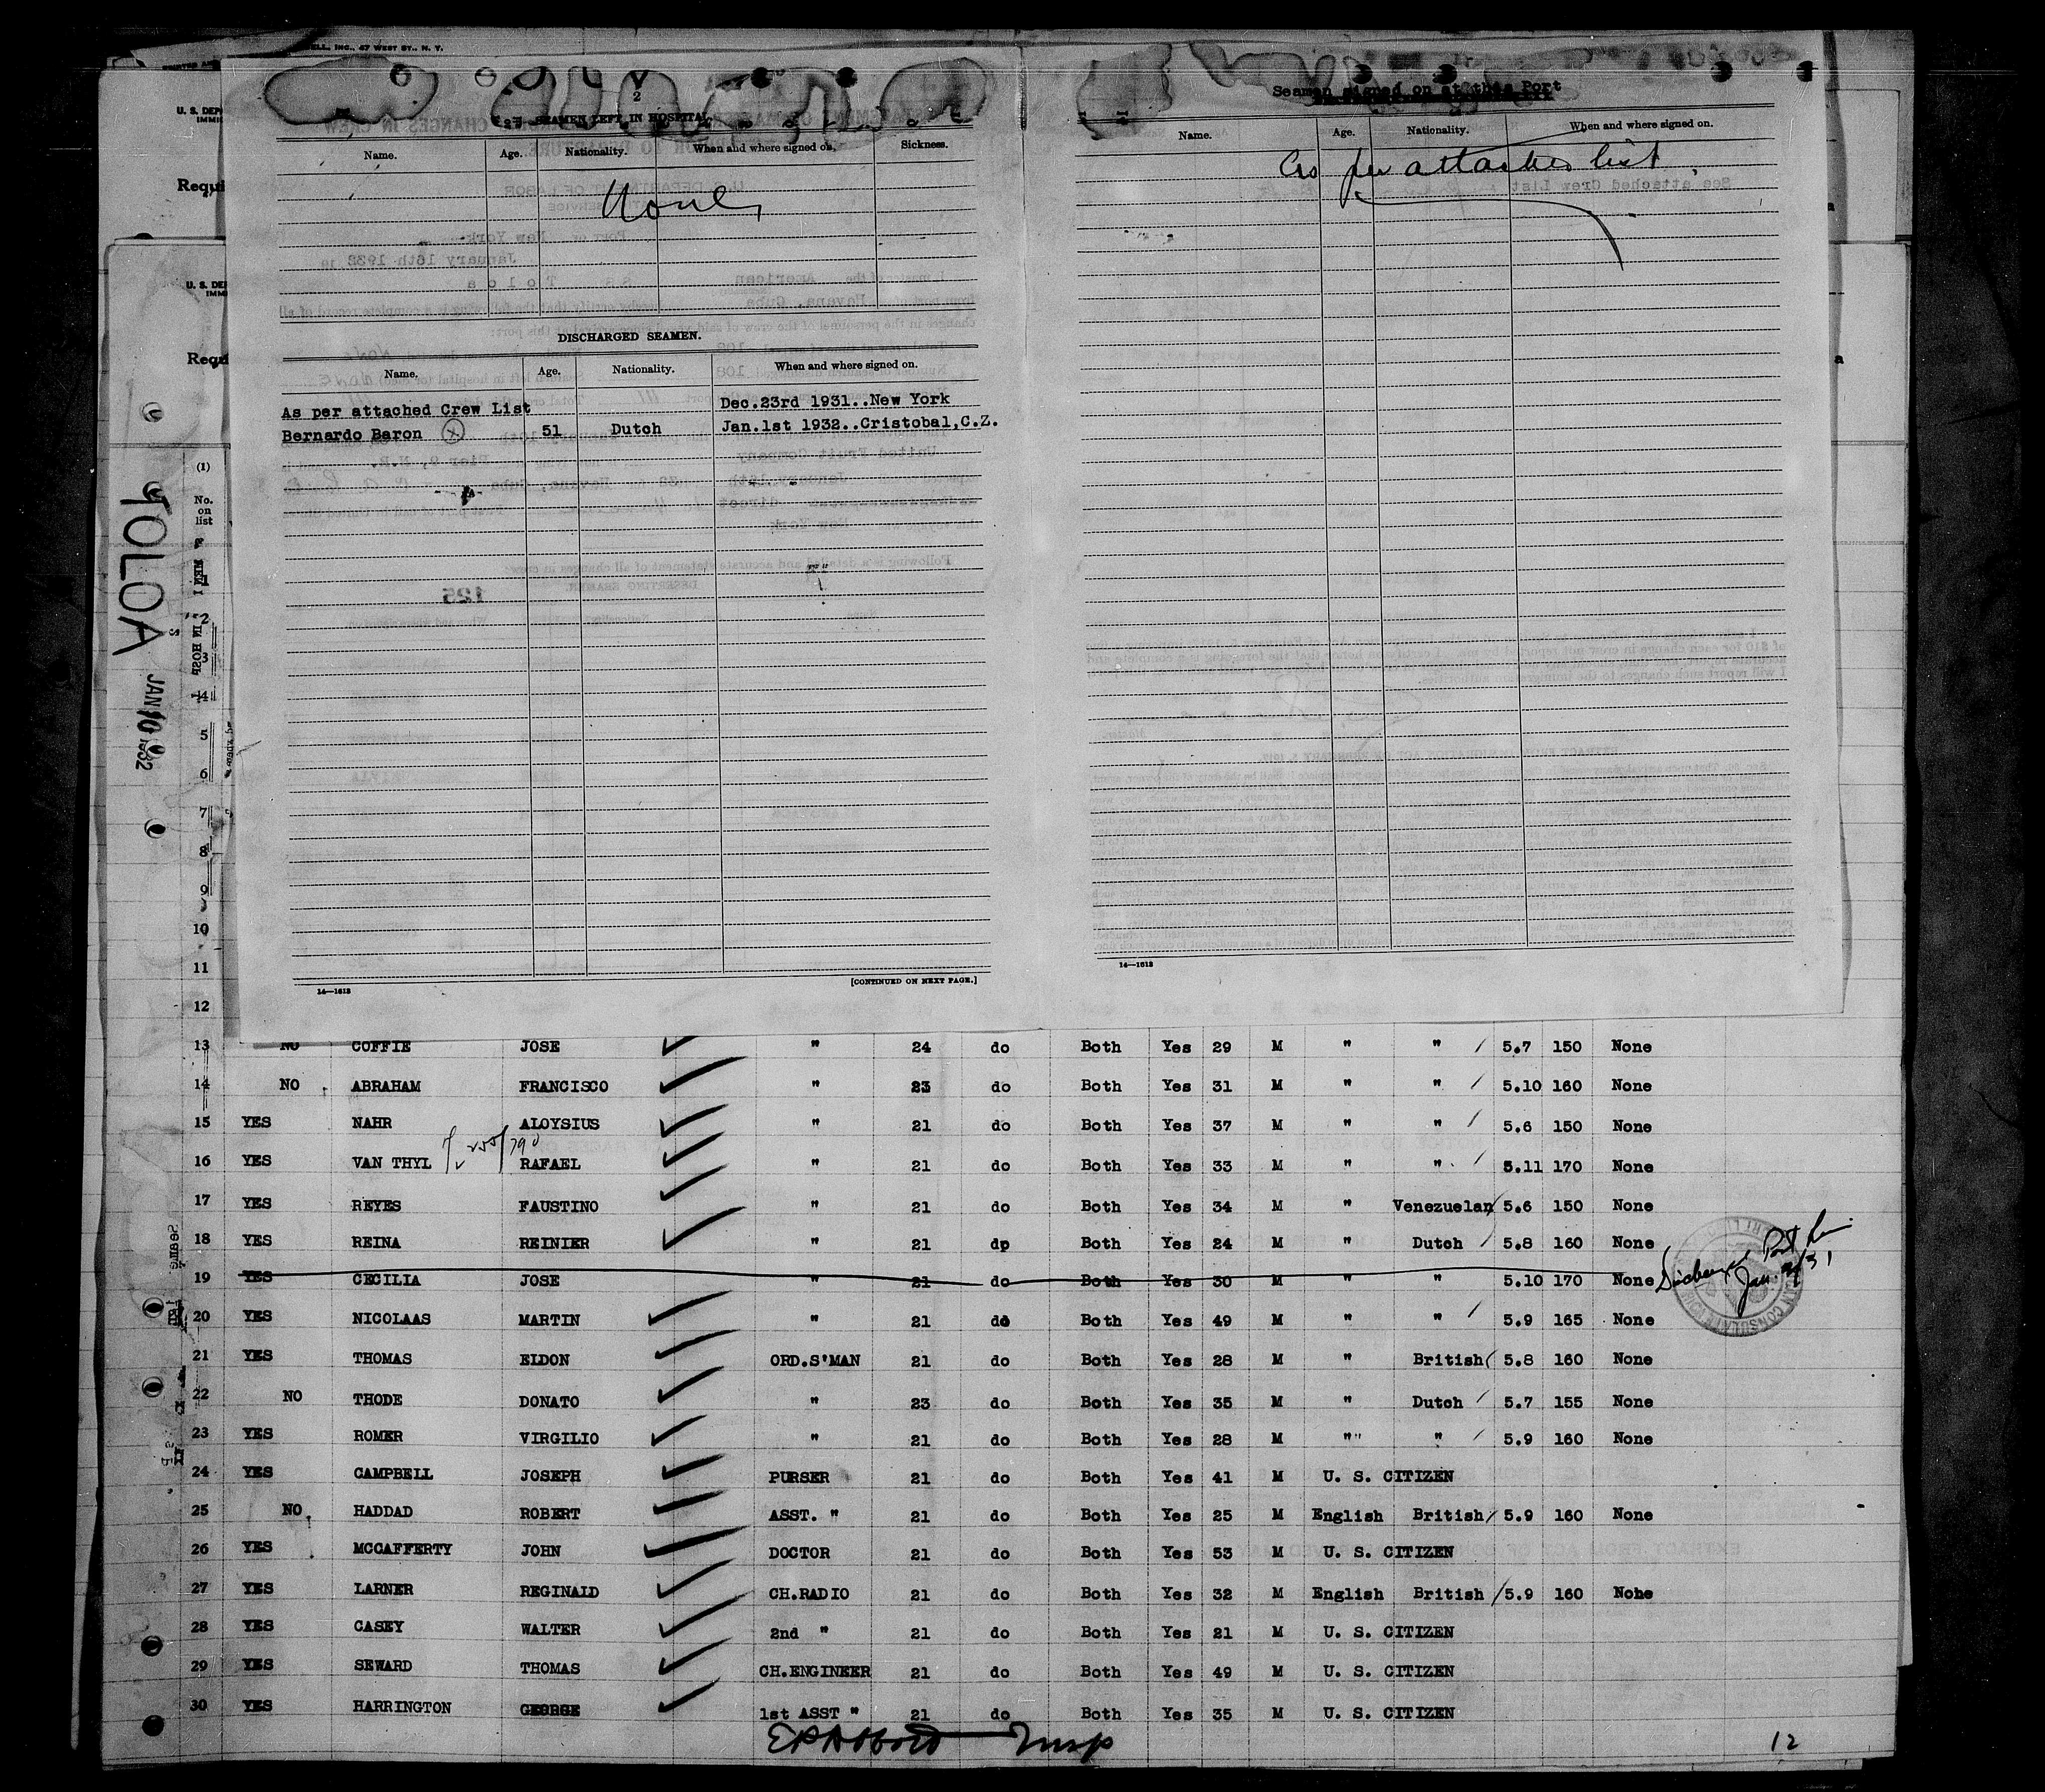 ELL, INC., 47 WEST ST., N. Y.
U. S. DEP
IMMI
Requi
U. S. DE
IMM
Requ
TOLOA
JAN 10 1932
2
SEAMEN LEFT IN HOSPITAL
Name. Age. Nationality. When and where signed on. Sickness.
None
DISCHARGED SEAMEN.
Name. Age. Nationality. When and where signed on.
As per attached Crew List Dec.23rd 1931..New York
Bernardo Baron X 51 Dutch Jan.1st 1932..Cristobal,C.Z.
14—1613
[CONTINUED ON NEXT PAGE.]
Seamen signed on at this Port
Name. Age. Nationality. When and where signed on.
As per attached list
14—1613
(1)
No.
on
list
1
2
3
4
5
6
7
8
9
10
11
12
13 NO COFFIE JOSE " 24 do Both Yes 29 M " " 5.7 150 None
14 NO ABRAHAM FRANCISCO " 23 do Both Yes 31 M " " 5.10 160 None
15 YES NAHR ALOYSIUS " 21 do Both Yes 37 M " " 5.6 150 None
16 YES VAN THYL RAFAEL " 21 do Both Yes 33 M " " 5.11 170 None
17 YES REYES FAUSTINO " 21 do Both Yes 34 M " Venezuelan 5.6 150 None
18 YES REINA REINIER " 21 dp Both Yes 24 M " Dutch 5.8 160 None
19 YES CECILIA JOSE " 21 do Both Yes 30 M " " 5.10 170 None
20 YES NICOLAAS MARTIN " 21 do Both Yes 49 M " " 5.9 165 None
21 YES THOMAS ELDON ORD.S'MAN 21 do Both Yes 28 M " British 5.8 160 None
22 NO THODE DONATO " 23 do Both Yes 35 M " Dutch 5.7 155 None
23 YES ROMER VIRGILIO " 21 do Both Yes 28 M "" " 5.9 160 None
24 YES CAMPBELL JOSEPH PURSER 21 do Both Yes 41 M U. S. CITIZEN
25 NO. HADDAD ROBERT ASST. " 21 do Both Yes 25 M English British 5.9 160 None
26 YES MCCAFFERTY JOHN DOCTOR 21 do Both Yes 53 M U. S. CITIZEN
27 YES LARNER REGINALD CH.RADIO 21 do Both Yes 32 M English British 5.9 160 None
28 YES CASEY WALTER 2nd " 21 do Both Yes 21 M U. S. CITIZEN
29 YES SEWARD THOMAS CH.ENGINEER 21 do Both Yes 49 M U. S. CITIZEN
30 YES HARRINGTON GEORGE 1st ASST " 21 do Both Yes 35 M U. S. CITIZEN
Insp
12